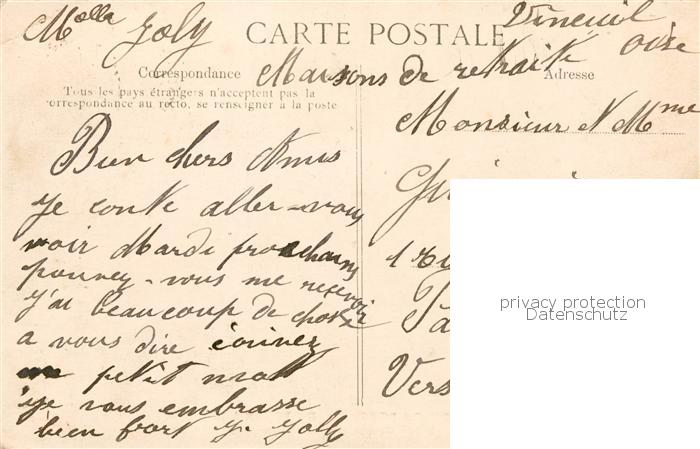 Melle Joly
CARTE POSTALE
Vineuil
Oise
Maisons de retraite
Correspondance
Adresse
Tous les pays étrangers n'acceptent pas la
correspondance au recto, se renseigner à la poste
Monsieur & Mme
Bien chers Amis
je conte aller-vous
voir Mardi prochain
pouvez-vous me recevoir
j'ai beaucoup de chose
a vous dire écrivez
un petit mott
je vous embrasse
bien fort J. Jolly
1
Vers
privacy protection
Datenschutz